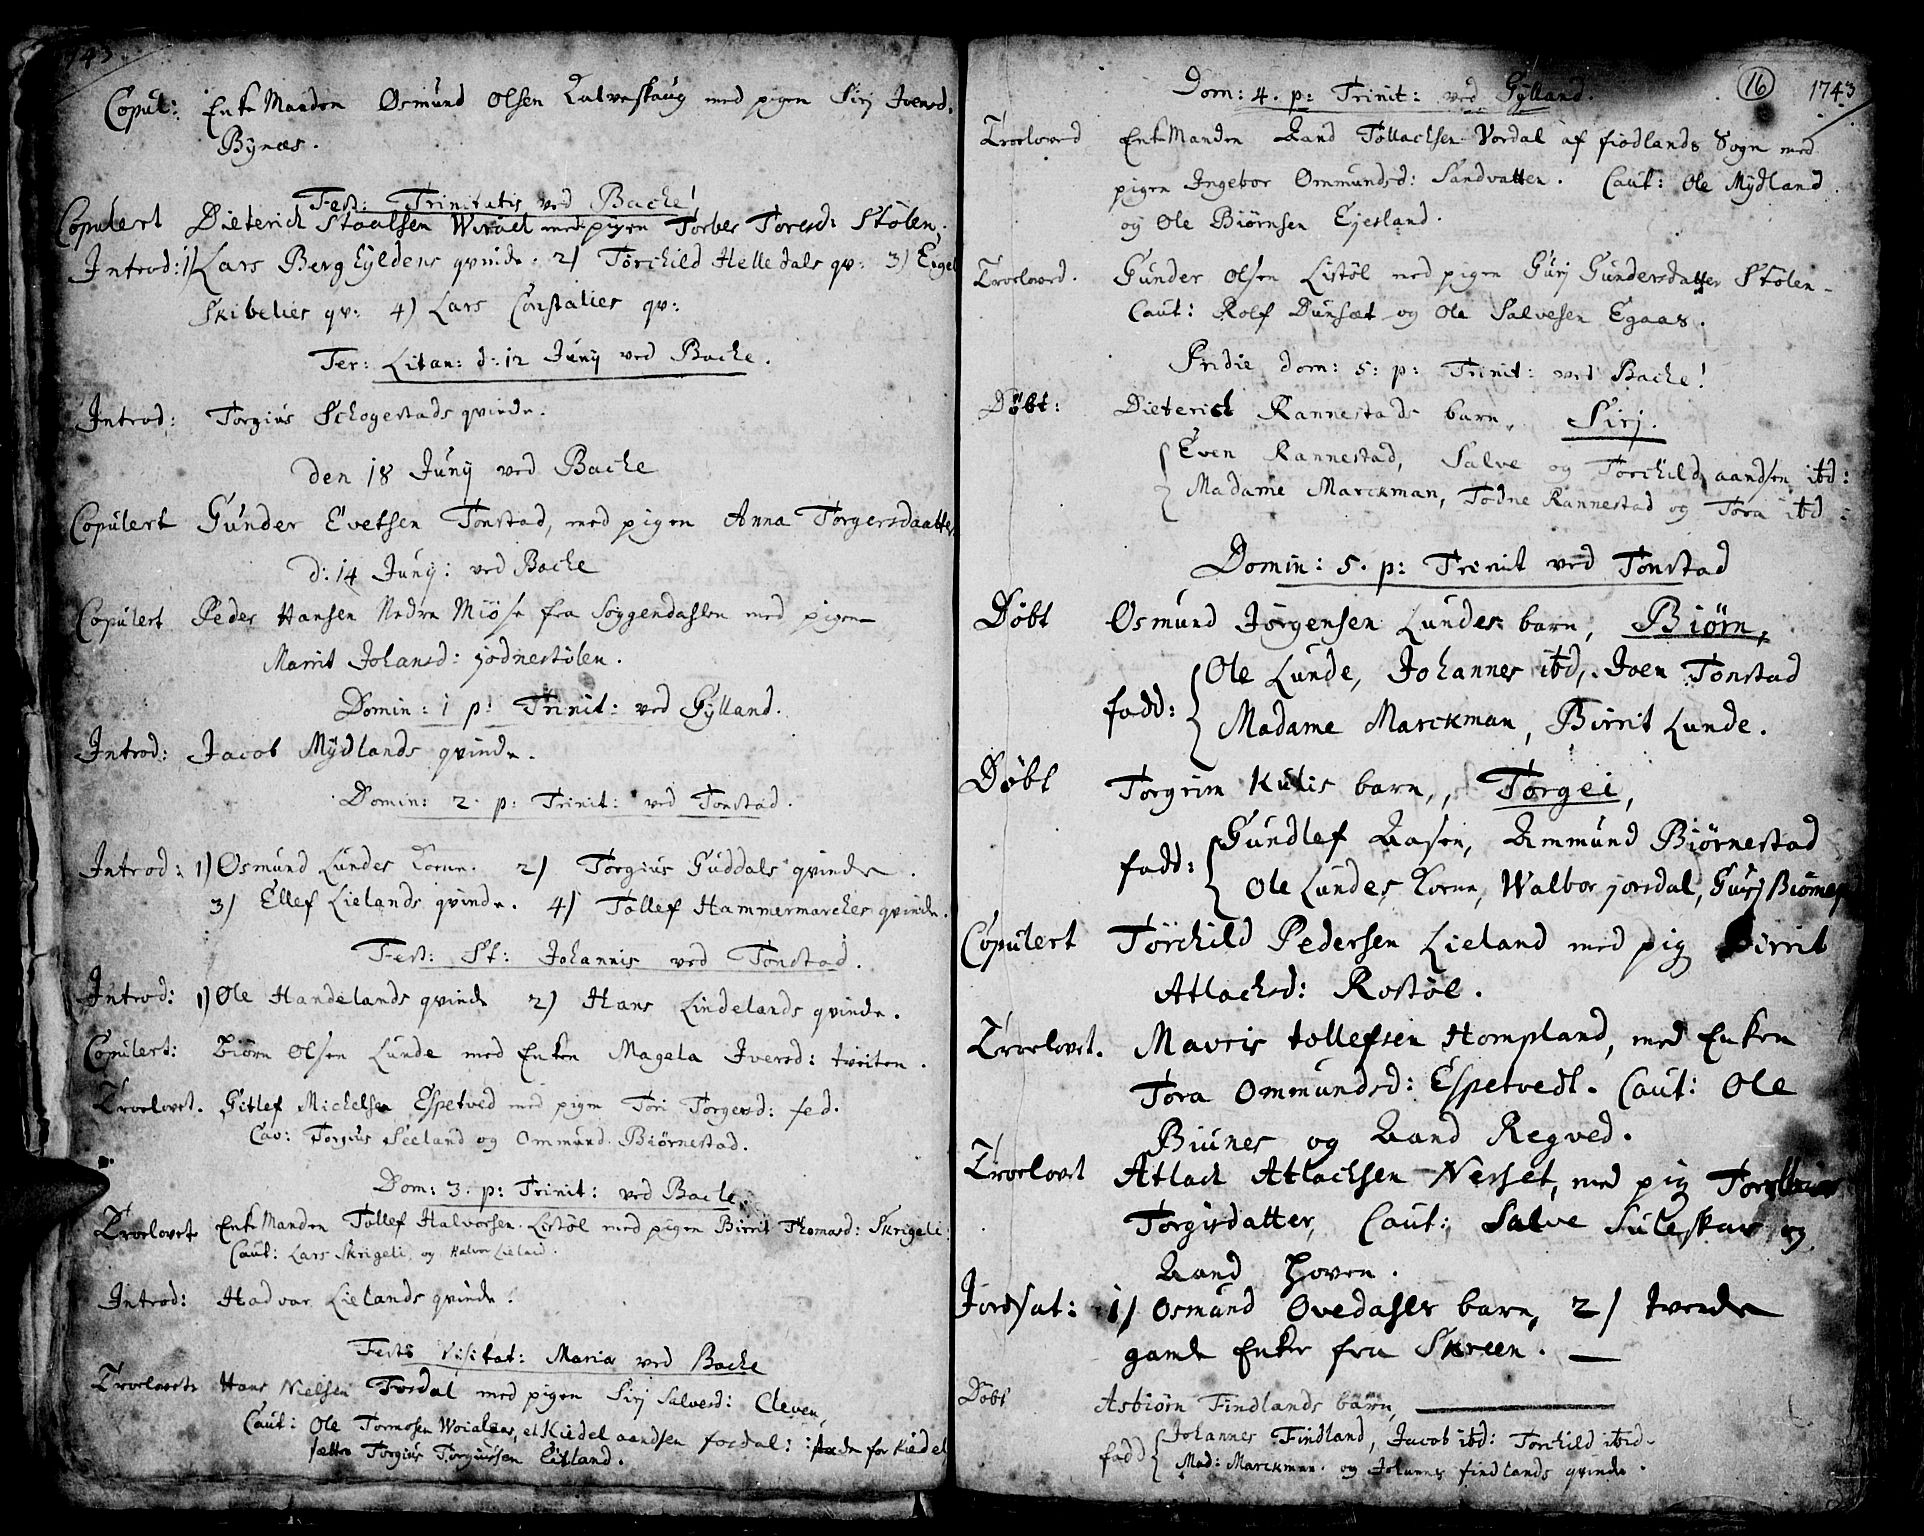 1743
Copul: EnkeManden Osmund Olsen Kalveskaug med pigen Siri Joensd:
Bynæs.
Fest: Trinitatis ved Bache!
Copulert Dieterich Staalsen med pigen Torber Toresd: Stølen,
Introd: 1) Lars Berghyldens qvinde. 2) Torchild Helledals qv: 3)
Skibelies qv: 4) Lars Constalies qv:
Ter: Litan: d: 12 Junij ved Bache.
Introd: Torgius Schogestads qvinde.
den 18 Junij ved Bache
Copulert Gunder Evetsen Tonstad, med pigen Anna Torgersdaatter
d: 14 Junij: ved Bache
Copulert Peder Hansen Nedre Miøse fra Soggendahlen med pigen
Marrit Johansd: jødnestølen.
Domin: 1 p: Trinit: ved Gylland.
Introd: Jacob Mydlands qvinde.
Domin: 2. p: Trinit: ved Tonstad.
Introd: 1) Osmund Lundes Kone. 2) Torgius Guddals qvinde.
3) Ellef Lielands qvinde. 4) Tollef Hammermarches qvinde.
Fest: St: Johannis ved Tonstad.
Introd: 1) Ole Handelands qvinde 2) Hans Lindelands qvinde.
Copulert: Biørn Olsen Lunde med Enken Magela Iversd: tveiten.
Troelovet. Gitlef Michelsen Espetved med pigen Tori Torgersd: fed.
Cav: Torgius Seeland og Ommund Biørnestad.
Dom: 3. p: Trinit: ved Bache.
Troelovet EnkeManden Tollef Halvorsen Listøl med pigen Birrit Thomasd: Skrigeli:
Caut: Lars Skrigeli, og Halvor Lieland.
Introd: Hadvar Lielands qvinde.
Festo Visitat: Mariæ ved Bache
Troelovet Hans Nielsen Fosdal med pigen Siri Salvesd: Cleven,
Caut: Ole Tormosen Woialaas, et Kiedel aandsen fosdal: for Kiedel
sætte Torgius Torgiussen Eitland.
Dom: 4. p: Trinit: ved Gylland.
16 1743
Troeloved EnkeManden Aand Tollachsen Vordal af fiodlands Sogn med
pigen Ingebor Ommundsd: Sandvatten. Caut: Ole Mydland
og Ole Biørnsen Ejesland.
Troeloved. Gunder Olsen Listøl med pigen Gurj Gundersdatter Stølen
Caut: Rolf Dunsæt og Ole Salvesen Egaas.
Pridie dom: 5: p: Trinit: ved Bache!
Døbt: Dieterich Rannestads barn, Sirj.
Even Rannestad, Salve og Torchild aandsen ibd:
Madame Marckman, Todne Rannestad og Tora ibd:
Domin: 5. p: Trinit ved Tonstad
Døbt Osmund Jørgensen Lundes barn, Biørn,
fadd: Ole Lunde, Johannes ibd, Joen Tonstad
Madame Marckman, Birrit Lunde.
Døbt Torgrim Kulis barn, Torgei,
fadd: Gundlef Aasen, Ammund Biørnestad
Ole Lundes Kone, Walbor josdal, Gurj Biørnes
Copulert Torchild Pedersen Lieland med pig Birrit
Atlachsd: Rostøl.
Troelovet. Mavris tollefsen Hompland, med Enken
Tora Ommundsd: Espetvedt. Caut: Ole
Biunes og Aand Regved.
Troelovet Atlach Atlachsen Nesset, med pig
Torgisdatter, Caut: Salve Suleskar og
Aand Hoven.
Jordsat: 1) Osmund Ovedahls barn, 2) tvende
gamle Enker fra Skreen.
Døbt Asbiørn Findlands barn,
fadd Johannes Findland, Jacob ibd: Torchild ibid.
Mad: Marckman. og Johannes findlands qvinde.